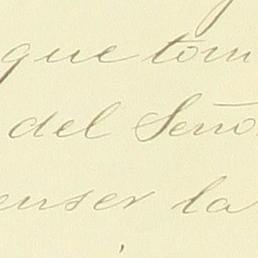 que tom
del Seño
enser la